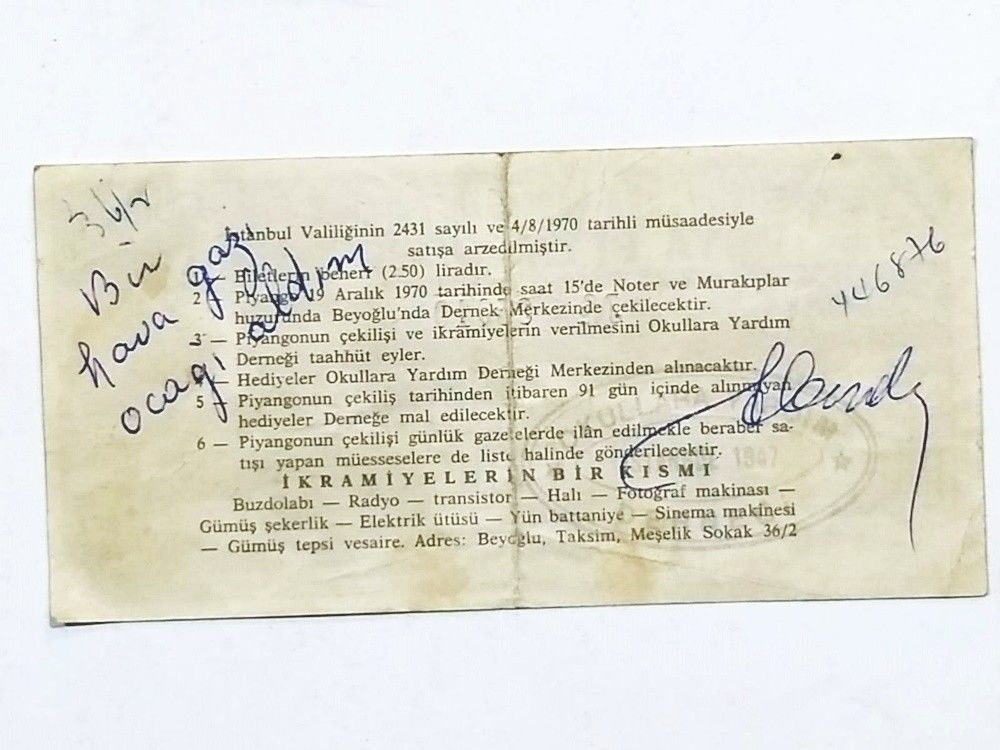 36/2
Bir
hava gazı
ocağı aldım
İstanbul Valiliğinin 2431 sayılı ve 4/8/1970 tarihli müsaadesiyle
satışa arzedilmiştir.
1 — Biletlerin beheri (2.50) liradır.
2 — Piyango 19 Aralık 1970 tarihinde saat 15'de Noter ve Murakıplar
huzurunda Beyoğlu'nda Dernek Merkezinde çekilecektir.
3 — Piyangonun çekilişi ve ikramiyelerin verilmesini Okullara Yardım
Derneği taahhüt eyler.
— Hediyeler Okullara Yardım Derneği Merkezinden alınacaktır.
5 — Piyangonun çekiliş tarihinden itibaren 91 gün içinde alınmayan
hediyeler Derneğe mal edilecektir.
6 — Piyangonun çekilişi günlük gazetelerde ilân edilmekle beraber sa-
tışı yapan müesseselere de liste halinde gönderilecektir.
İKRAMİYELERİN BİR KISMI
Buzdolabı — Radyo — transistor — Halı — Fotoğraf makinası —
Gümüş şekerlik — Elektrik ütüsü — Yün battaniye — Sinema makinesi
— Gümüş tepsi vesaire. Adres: Beyoğlu, Taksim, Meşelik Sokak 36/2
446876
OKULLARA
1947